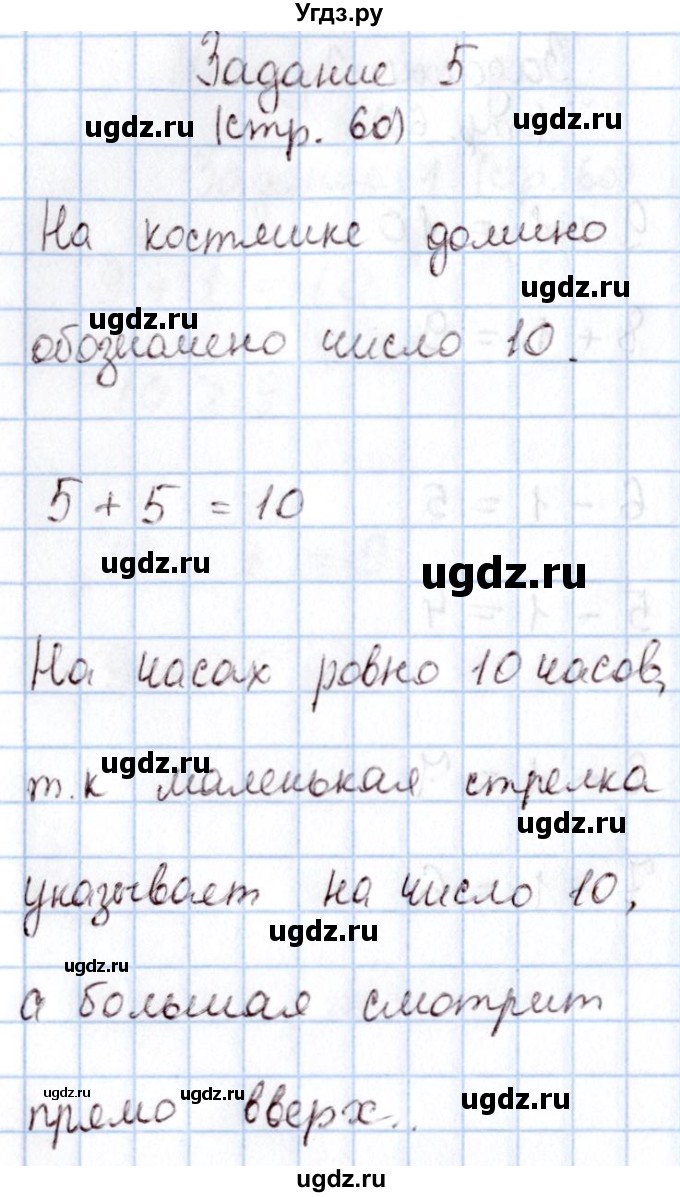 Угдз.ру
Задание 5
ugdz.ru
(стр. 60)
ugdz.ru
На костяшке домино
ugdz.ru
ugdz.ru
обозначено число 10.
5 + 5 = 10
ugdz.ru
ugdz.ru
На часах ровно 10 часов,
ugdz.ru
т.к маленькая стрелка
ugdz.ru
указывает на число 10,
ugdz.ru
ugdz.ru
а большая смотрит
ugdz.ru
ugdz.ru
ugdz.ru
прямо вверх..
ugdz.ru